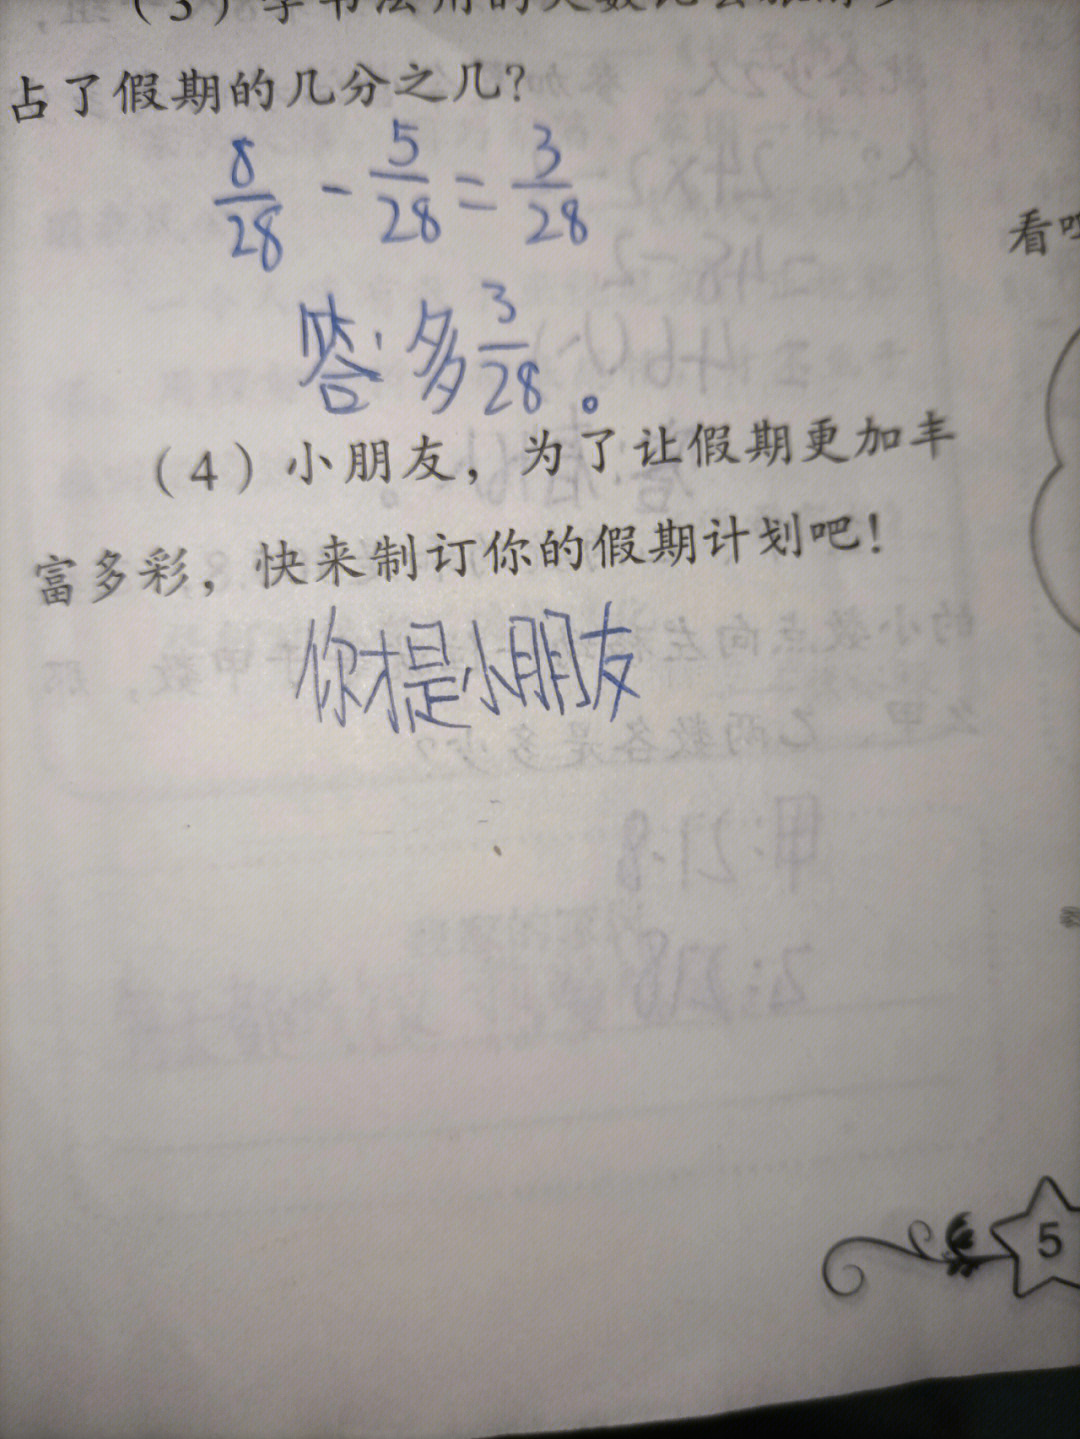 占了假期的几分之几?
8/28 - 5/28 = 3/28
答:多3/28。
看
(4)小朋友,为了让假期更加丰
富多彩,快来制订你的假期计划吧!
你才是小朋友
5